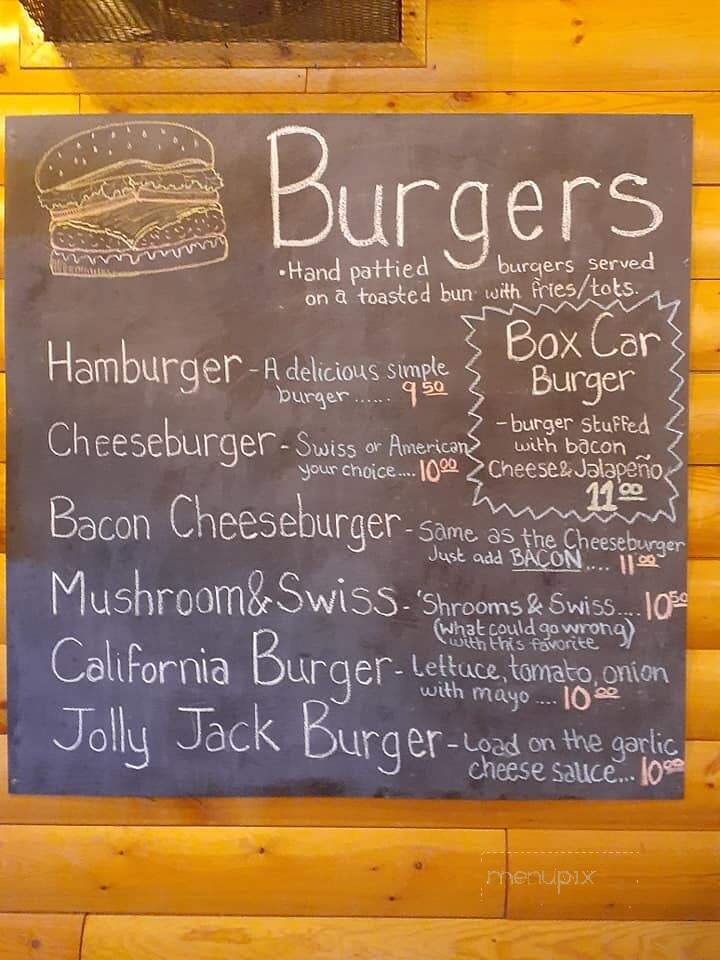 Burgers
•Hand pattied burgers served
on a toasted bun with fries/tots.
Hamburger - A delicious simple
burger ...... 9 50
Cheeseburger - Swiss or American
your choice.... 10 00
Box Car
Burger
-burger stuffed
with bacon
Cheese & Jalapeño
11 00
Bacon Cheeseburger - Same as the Cheeseburger
Just add BACON .... 11 00
Mushroom & Swiss - 'Shrooms & Swiss.... 10 50
(What could go wrong)
with this favorite
California Burger - Lettuce, tomato, onion
with mayo .... 10 00
Jolly Jack Burger - Load on the garlic
cheese sauce... 10 00
menupix